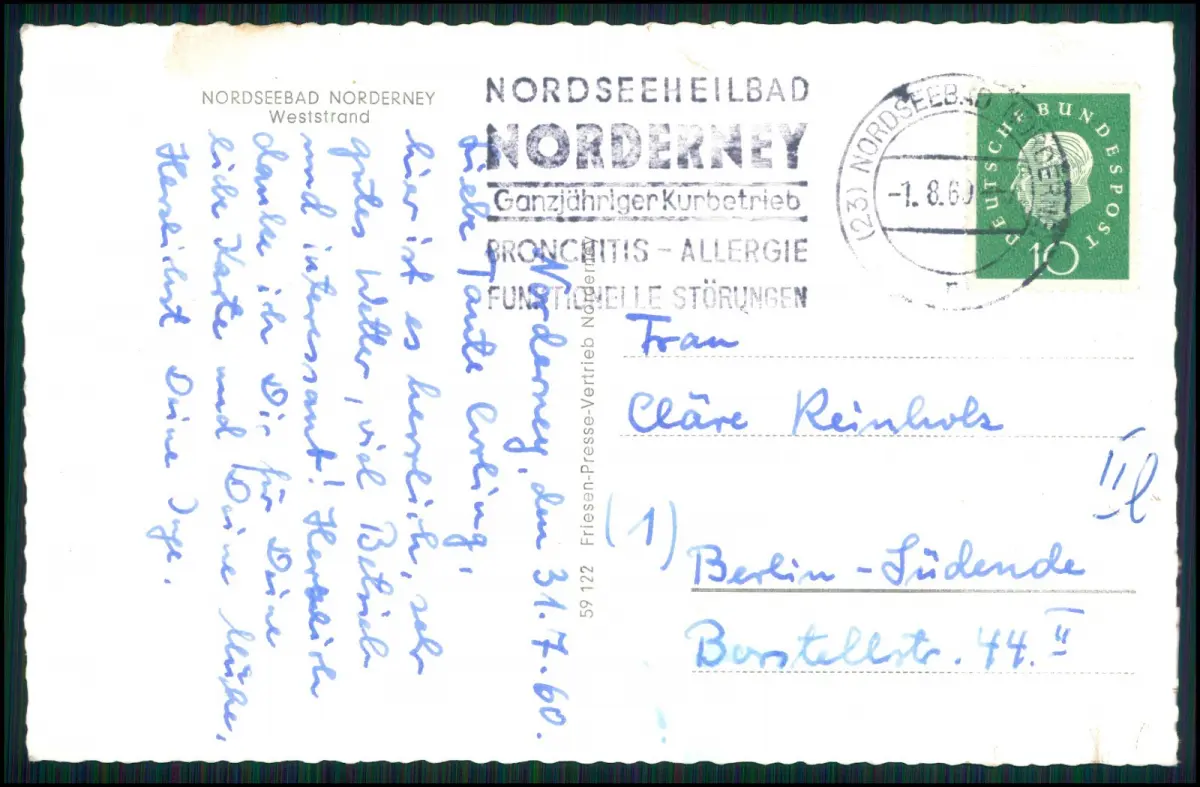 NORDSEEBAD NORDERNEY
Weststrand
NORDSEEHEILBAD
NORDERNEY
Ganzjähriger Kurbetrieb
BRONCHITIS - ALLERGIE
FUNKTIONELLE STÖRUNGEN
(23) NORDSEEBAD NORDERNEY
-1.8.60
DEUTSCHE BUNDESPOST
10
Norderney, den 31.7.60.
Liebe Tante
hier ist es herrlich, sehr
gutes Wetter, viel Betrieb
und interessant! Herzlich
danke ich Dir für Deine
liebe Karte und Deine Mühe,
Herzlichst Deine Inge.
59 122 Friesen-Presse-Vertrieb Norderney
Frau
Cläre Reinholz
II
(1)
Berlin-Südende
Borstellstr. 44. II